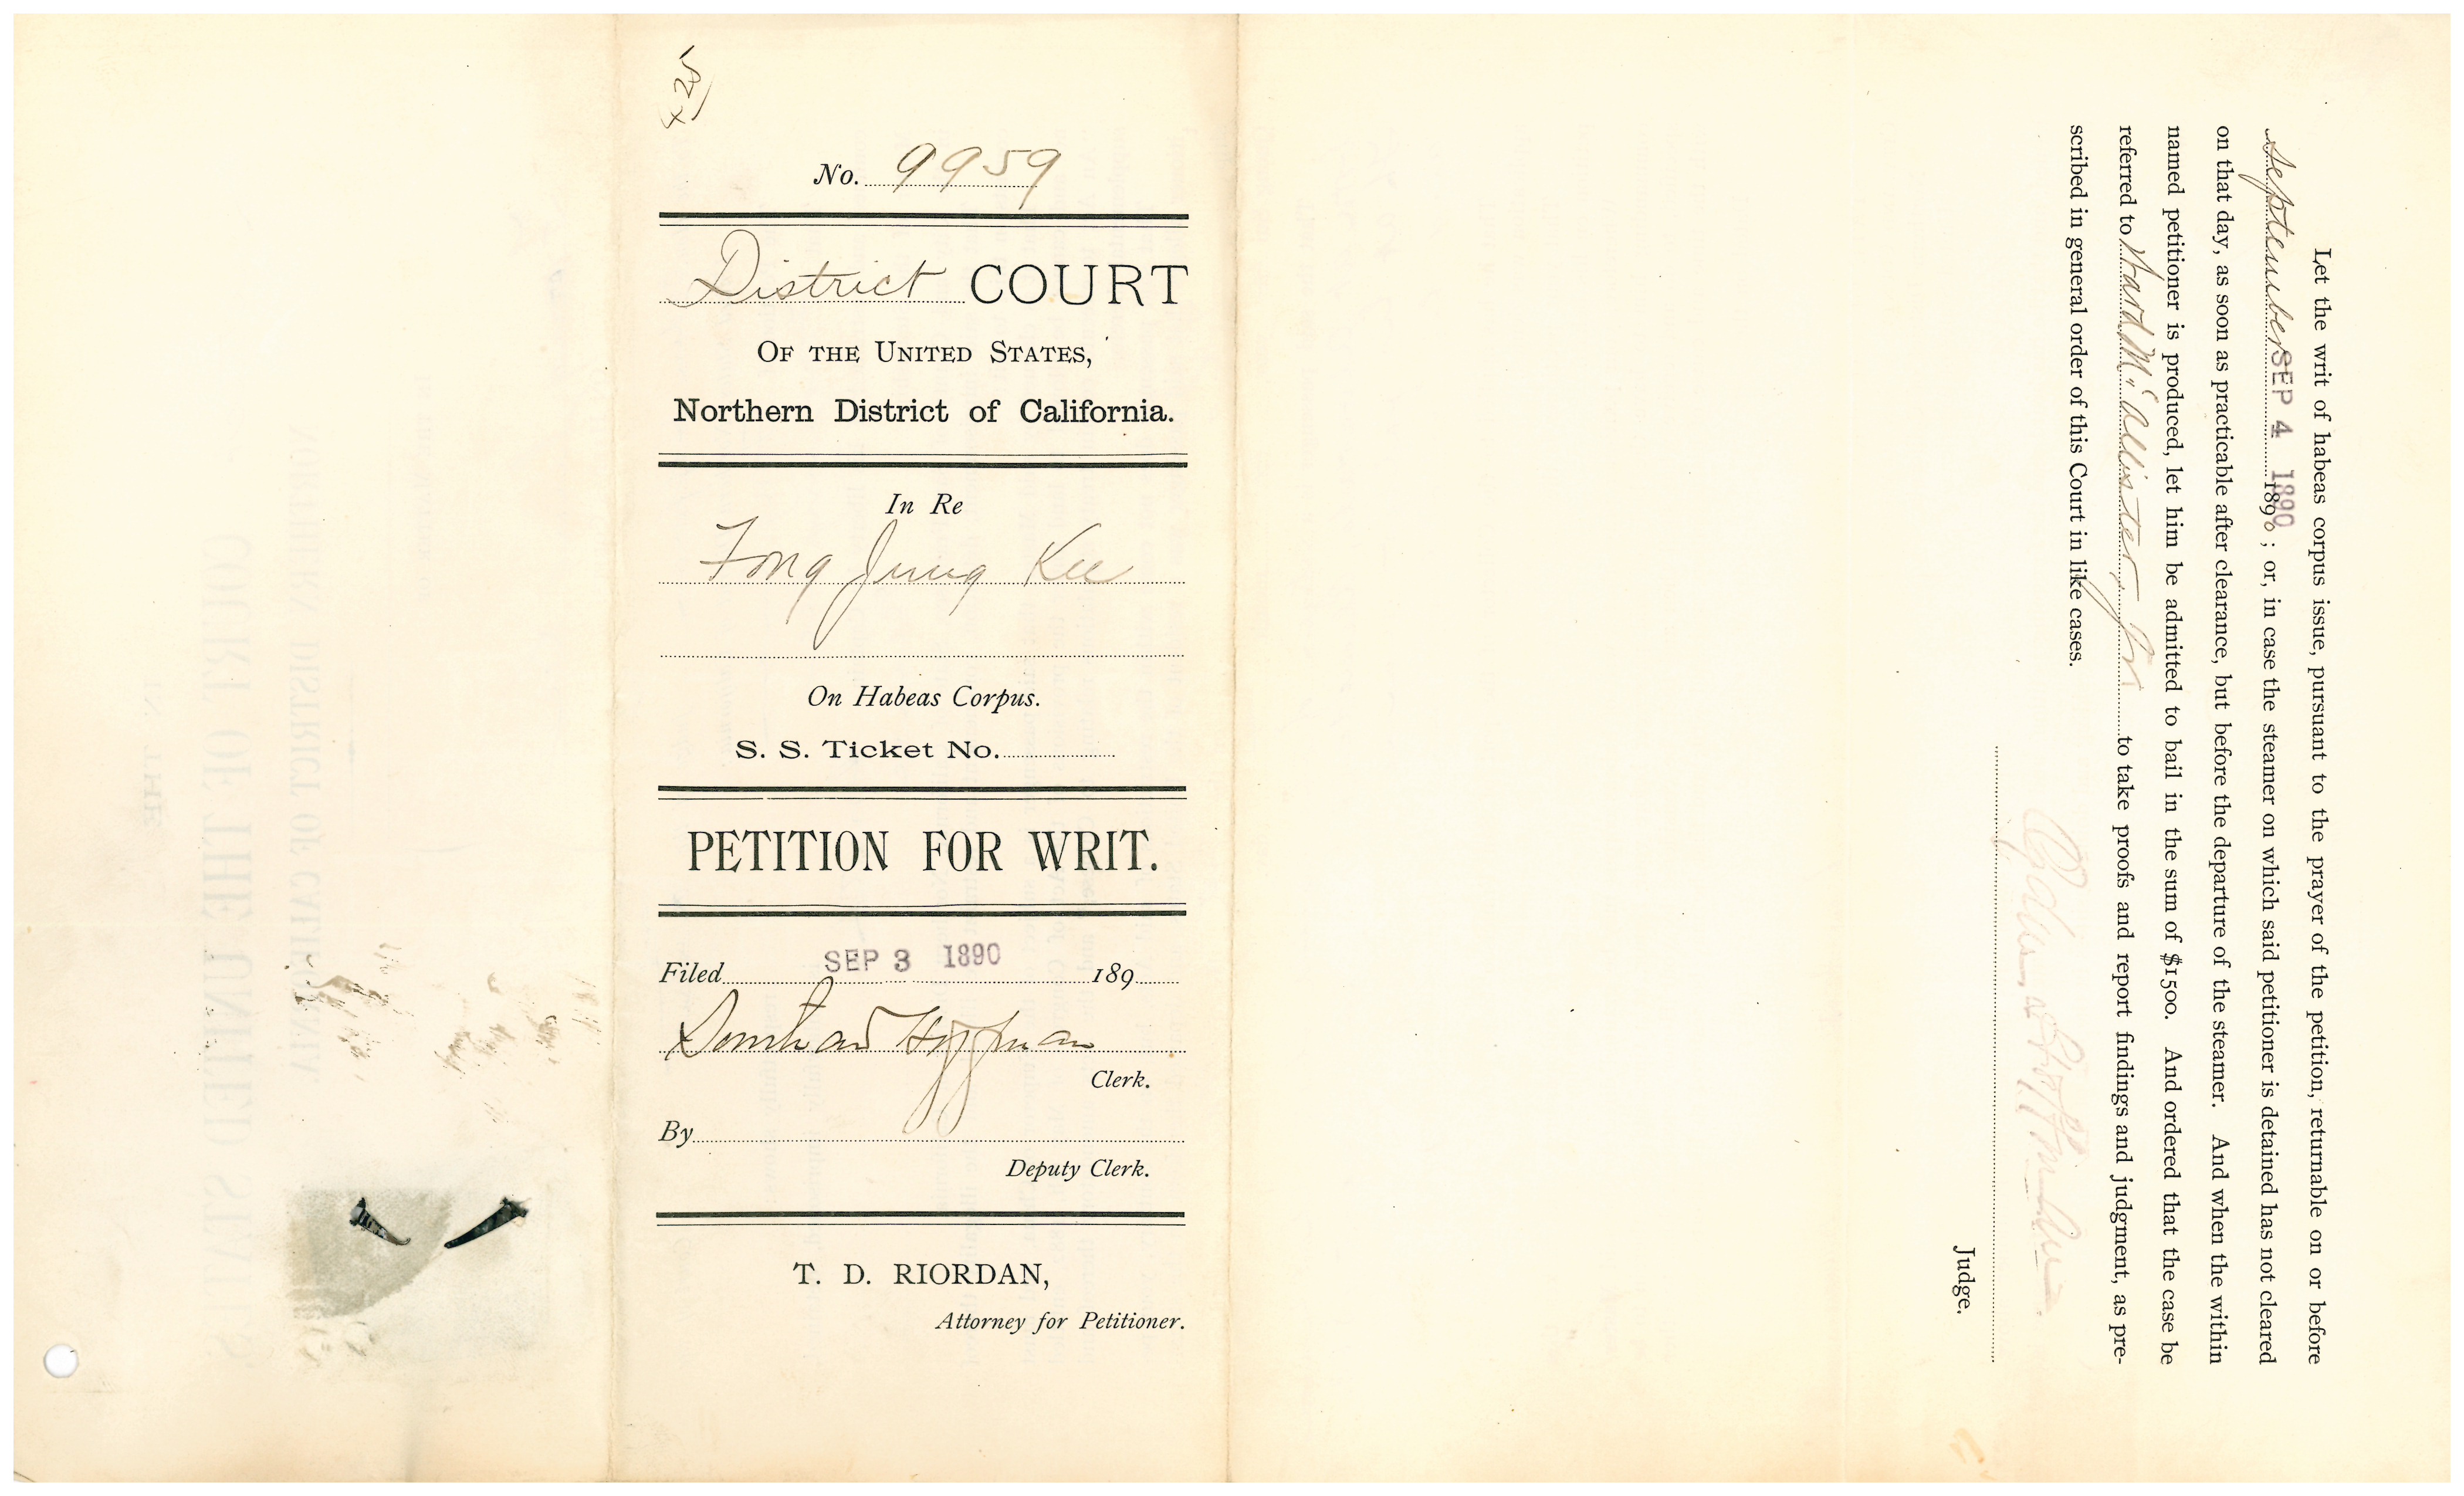 No. 9959
District COURT
OF THE UNITED STATES,
Northern District of California.
In Re
Fong Jung Kee
On Habeas Corpus.
S. S. Ticket No.
PETITION FOR WRIT.
Filed SEP 3 1890 189
Southard Hoffman
Clerk.
By
Deputy Clerk.
T. D. RIORDAN,
Attorney for Petitioner.
Let the writ of habeas corpus issue, pursuant to the prayer of the petition, returnable on or before
September SEP 4 1890 1890; or, in case the steamer on which said petitioner is detained has not cleared
on that day, as soon as practicable after clearance, but before the departure of the steamer. And when the within
named petitioner is produced, let him be admitted to bail in the sum of $1500. And ordered that the case be
referred to Ward McAllister, Jr to take proofs and report findings and judgment, as pre-
scribed in general order of this Court in like cases.
Judge.
IN THE
COURT OF THE UNITED STATES
NORTHERN DISTRICT OF CALIFORNIA.